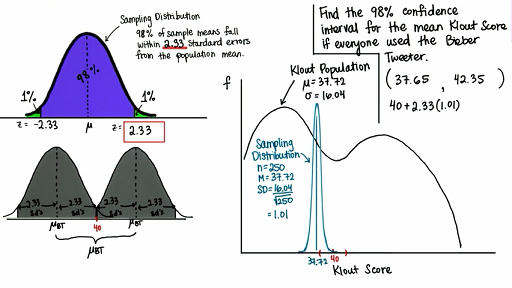 Sampling Distribution
98% of sample means fall
within 2.33 standard errors
from the population mean.
98%
1%
1%
z = -2.33
μ
z = 2.33
2.33 sd's
2.33 sd's
2.33 sd's
2.33 sd's
μBT
40
μBT
μBT
Find the 98% confidence
interval for the mean Klout Score
if everyone used the Bieber
Tweeter.
(37.65, 42.35)
40+2.33(1.01)
f
Klout Population
μ = 37.72
σ = 16.04
Sampling
Distribution
n=250
M=37.72
SD=16.04
√250
= 1.01
37.72
40
Klout Score